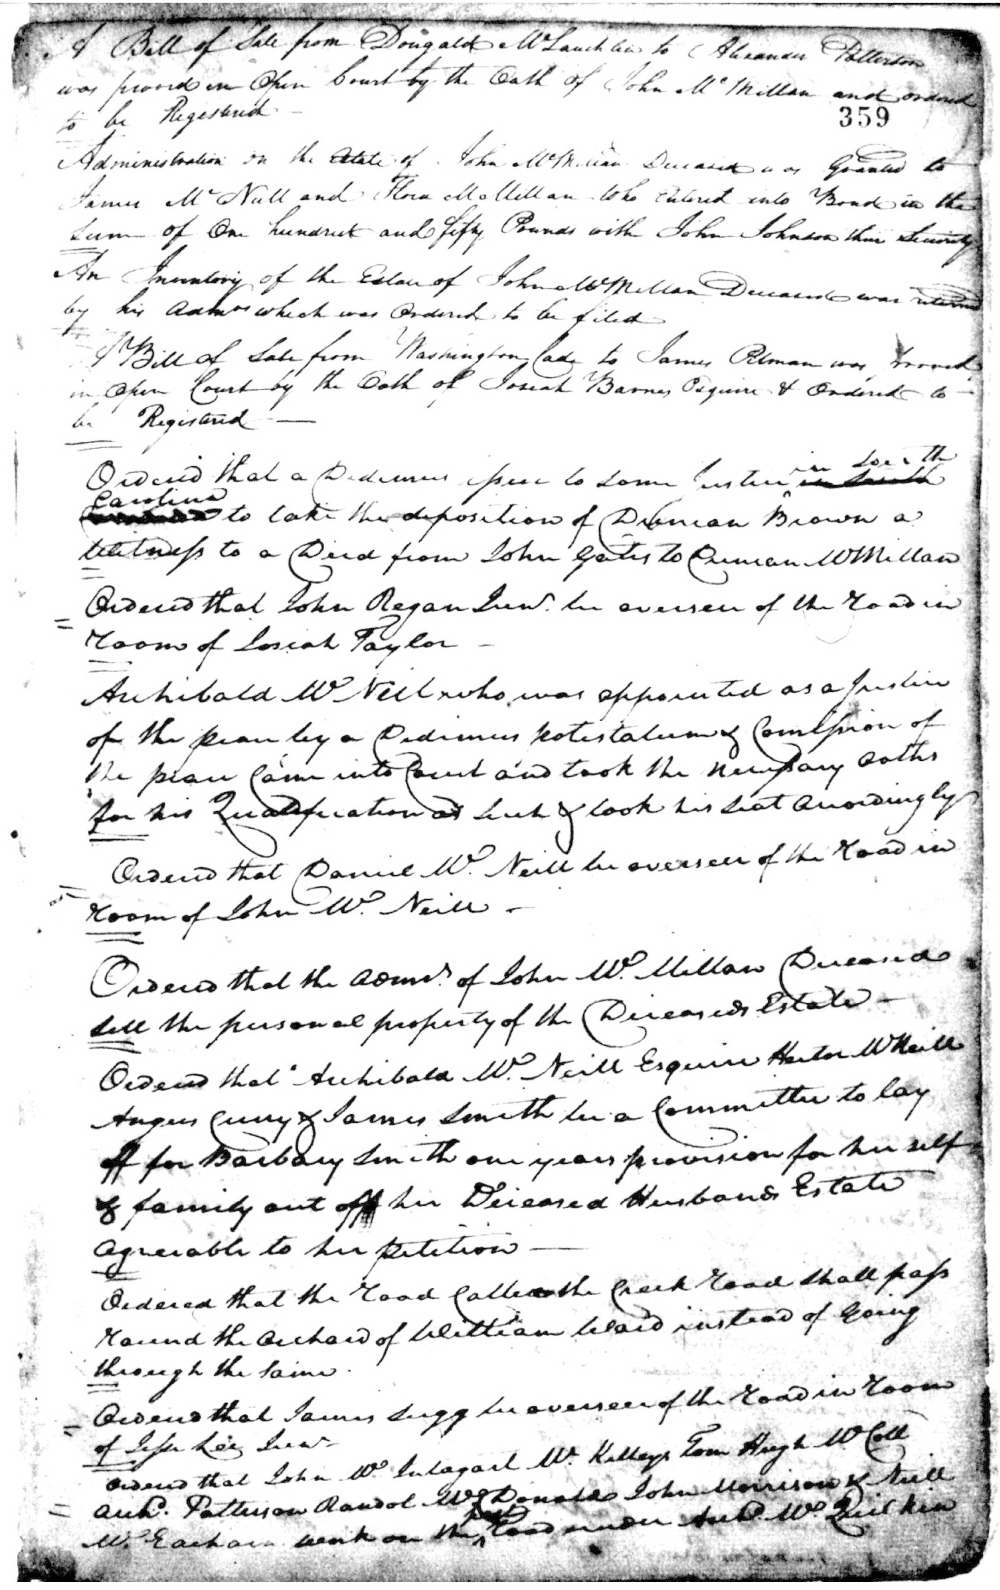 A Bill of Sale from Dougald McLauchlin to Alexander Patterson
was proved in Open Court by the Oath of John McMillan and ordered
359
to be Registered
Administration on the Estate of John McMillan Deceased was Granted to
James McNeill and Flora McMillan who Entered into Bond in the
Sum of One hundred and fifty Pounds with John Johnson their Security
An Inventory of the Estate of John McMillan Deceased was returned
by his Admrs which was Ordered to be filed
A Bill of Sale from Washington Cade to James Pitman was Proved
in Open Court by the Oath of Josiah Barnes Esquire & Ordered to
be Registered
Ordered that a Dedimus issue to some Justice in South
Carolina to take the deposition of Duncan Brown a
Witness to a Deed from John Gates to Duncan McMillan
Ordered that John Regan Junr. be overseer of the Road in
Room of Josiah Taylor
Archibald McNeill who was appointed as a Justice
of the peace by a Dedimus potestatum & Comission of
the peace Came into Court and took the necessary oaths
for his Qualification as Such & took his seat accordingly
Ordered that Daniel Mc.Neill be overseer of the Road in
Room of John Mc.Neill
Ordered that the Admrs of John Mc.Millan Deceased
sell the personal property of the Deceaseds Estate
Ordered that Archibald Mc.Neill Esquire Hector McNeill
Angus Curry & James Smith be a Committee to lay
off for Barbary Smith one years provision for her self
& family out off her Deceased Husbands Estate
agreeable to her petition
Ordered that the Road Called the Creek Road shall pass
round the orchard of William Ward instead of going
through the same
Ordered that James Sugg be overseer of the Road in Room
of Jesse Lee Junr
Ordered that John Mc Mc. Kelleys Tom Hugh McColl
Archd. Patterson Randol McDonald John Morrison & Neill
Mc.Eachern work on the Road under Archd Mc.